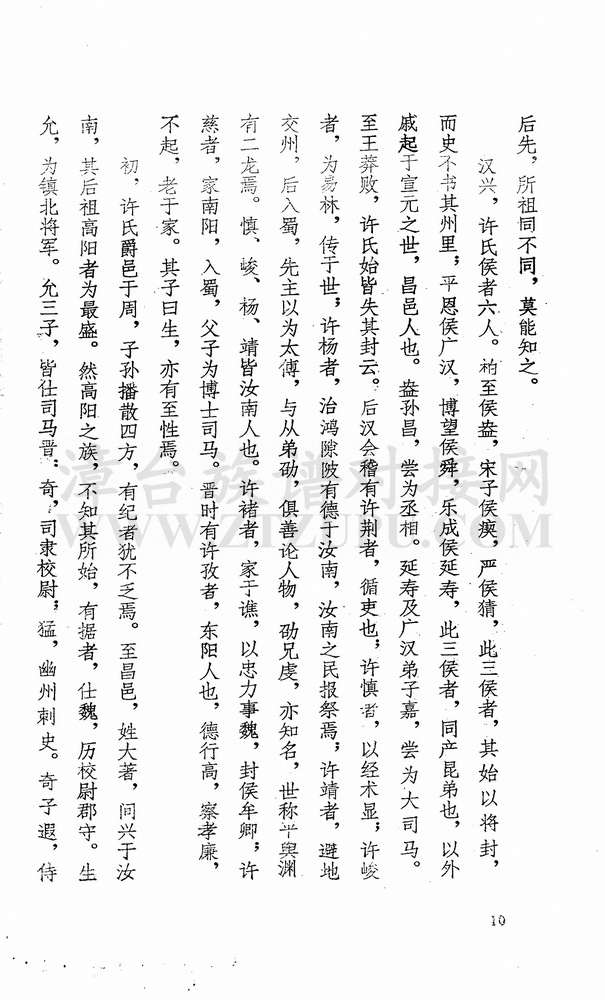 后先，所祖同不同，莫能知之。
汉兴，许氏侯者六人。柏至侯盎，宋子侯瘈，严侯猜，此三侯者，其始以将封，
而史不书其州里；平恩侯广汉，博望侯舜，乐成侯延寿，此三侯者，同产昆弟也，以外
戚起于宣元之世，昌邑人也。盎孙昌，尝为丞相。延寿及广汉弟子嘉，尝为大司马。
至王莽败，许氏始皆失其封云。后汉会稽有许荆者，循吏也；许慎者，以经术显；许峻
者，为易林，传于世；许杨者，治鸿隙陂有德于汝南，汝南之民报祭焉；许靖者，避地
交州，后入蜀，先主以为太傅，与从弟劭，俱善论人物，劭兄虔，亦知名，世称平舆渊
有二龙焉。慎、峻、杨、靖皆汝南人也。许褚者，家于谯，以忠力事魏，封侯牟卿；许
慈者，家南阳，入蜀，父子为博士司马。晋时有许孜者，东阳人也，德行高，察孝廉，
不起，老于家。其子曰生，亦有至性焉。
初，许氏爵邑于周，子孙播散四方，有纪者犹不乏焉。至昌邑，姓大著，间兴于汝
南，其后祖高阳者为最盛。然高阳之族，不知其所始，有据者，仕魏，历校尉郡守。生
允，为镇北将军。允三子，皆仕司马晋：奇，司隶校尉；猛，幽州刺史。奇子遐，侍
10
漳台族谱对接网
WWW.ZTZUPU.COM